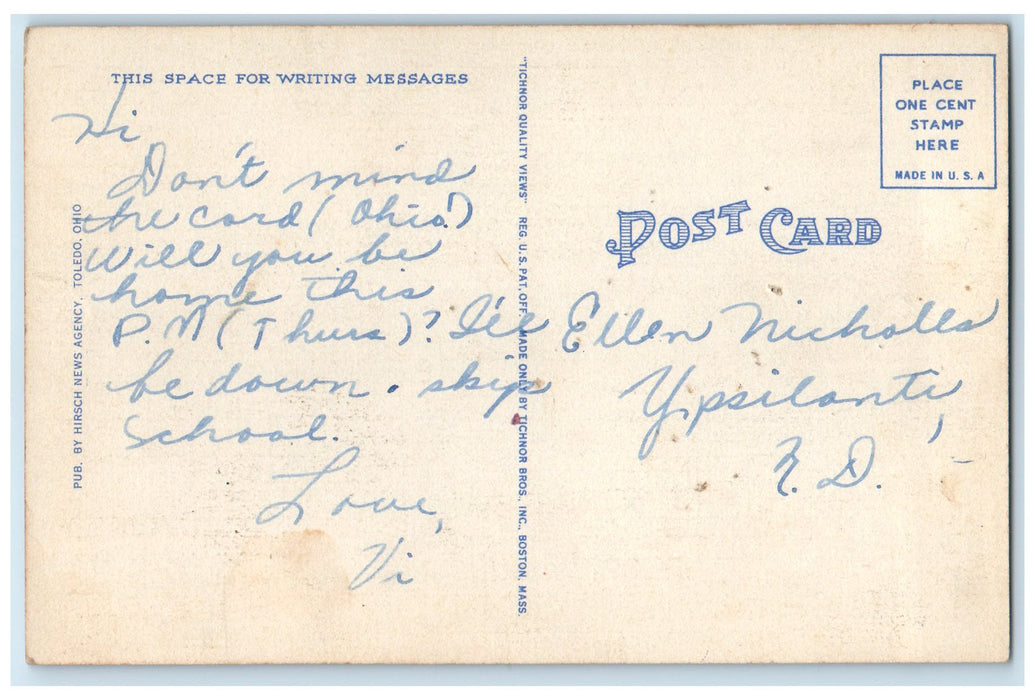 THIS SPACE FOR WRITING MESSAGES
Hi
Don't mind
the card (Ohio!)
Will you be
home this
P.M (Thurs)? I'll
be down. skip
School.
Love,
Vi
PUB. BY HIRSCH NEWS AGENCY, TOLEDO, OHIO
"TICHNOR QUALITY VIEWS" REG. U. S. PAT. OFF. MADE ONLY BY TICHNOR BROS., INC., BOSTON, MASS.
PLACE
ONE CENT
STAMP
HERE
MADE IN U. S. A
POST CARD
Ellen Nicholls
Ypsilanti,
D.